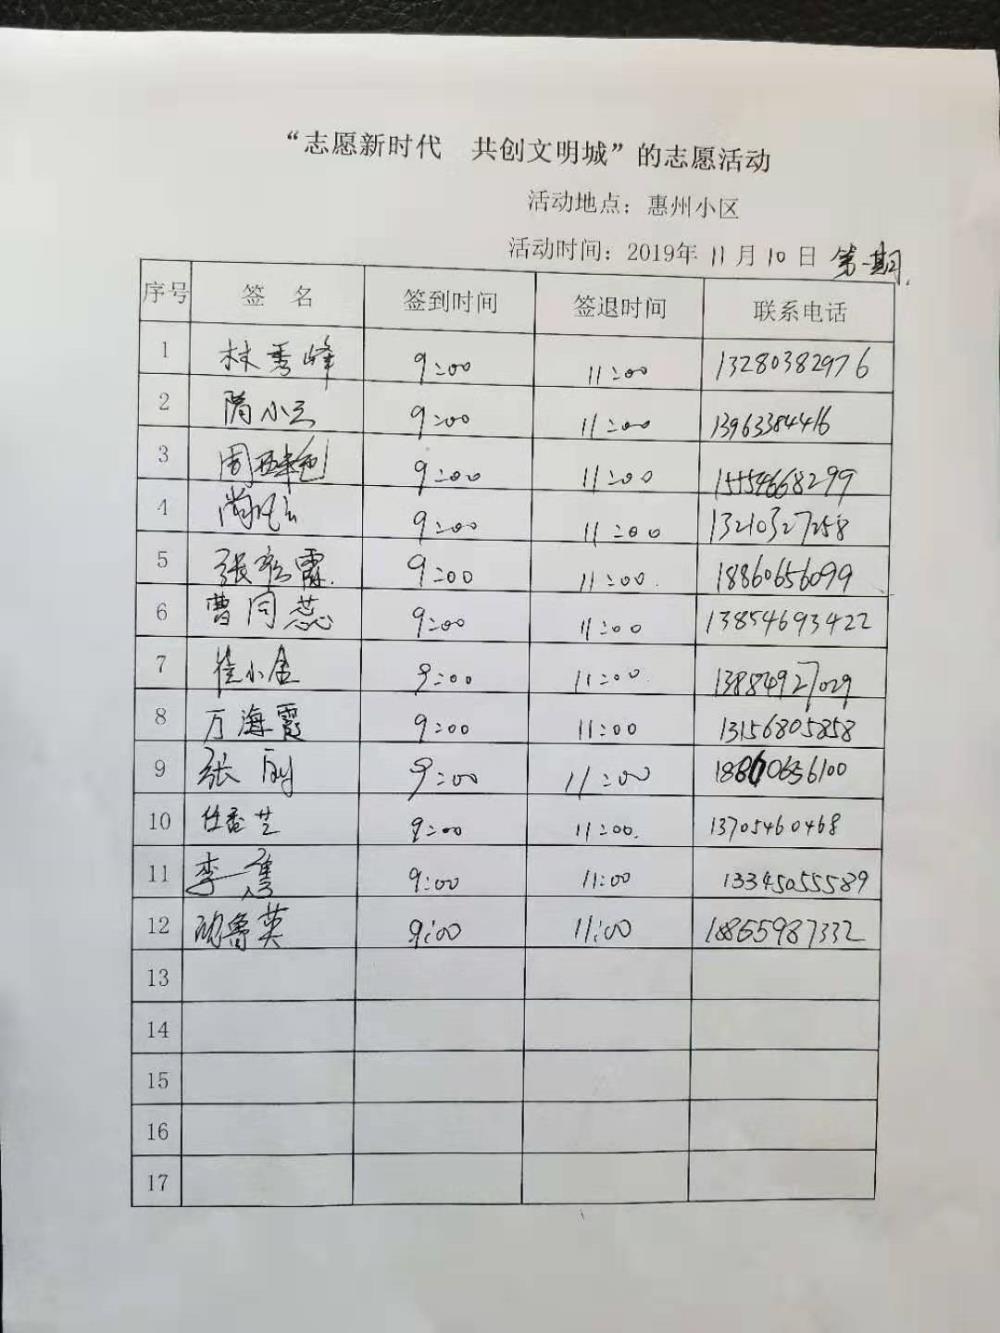 “志愿新时代 共创文明城”的志愿活动
活动地点：惠州小区
活动时间：2019年 11 月 10 日 第一期.
序号 签 名 签到时间 签退时间 联系电话
1 林秀峰 9:00 11:00 13280382976
2 隋小云 9:00 11:00 13963384416
3 周 9:00 11:00 15554668299
4 尚 9:00 11:00 13210327258
5 张 霞. 9:00 11:00. 18860656099
6 曹同蕊 9:00 11:00 13854693422
7 小金 9:00 11:00. 13884927029
8 万海霞 9:00 11:00 13156805858
9 张刚 9:00 11:00 18860656100
10 任 芝 9:00 11:00. 13705460468
11 李隽 9:00 11:00 13345055589
12 鲁英 9:00 11:00 18865987332
13
14
15
16
17